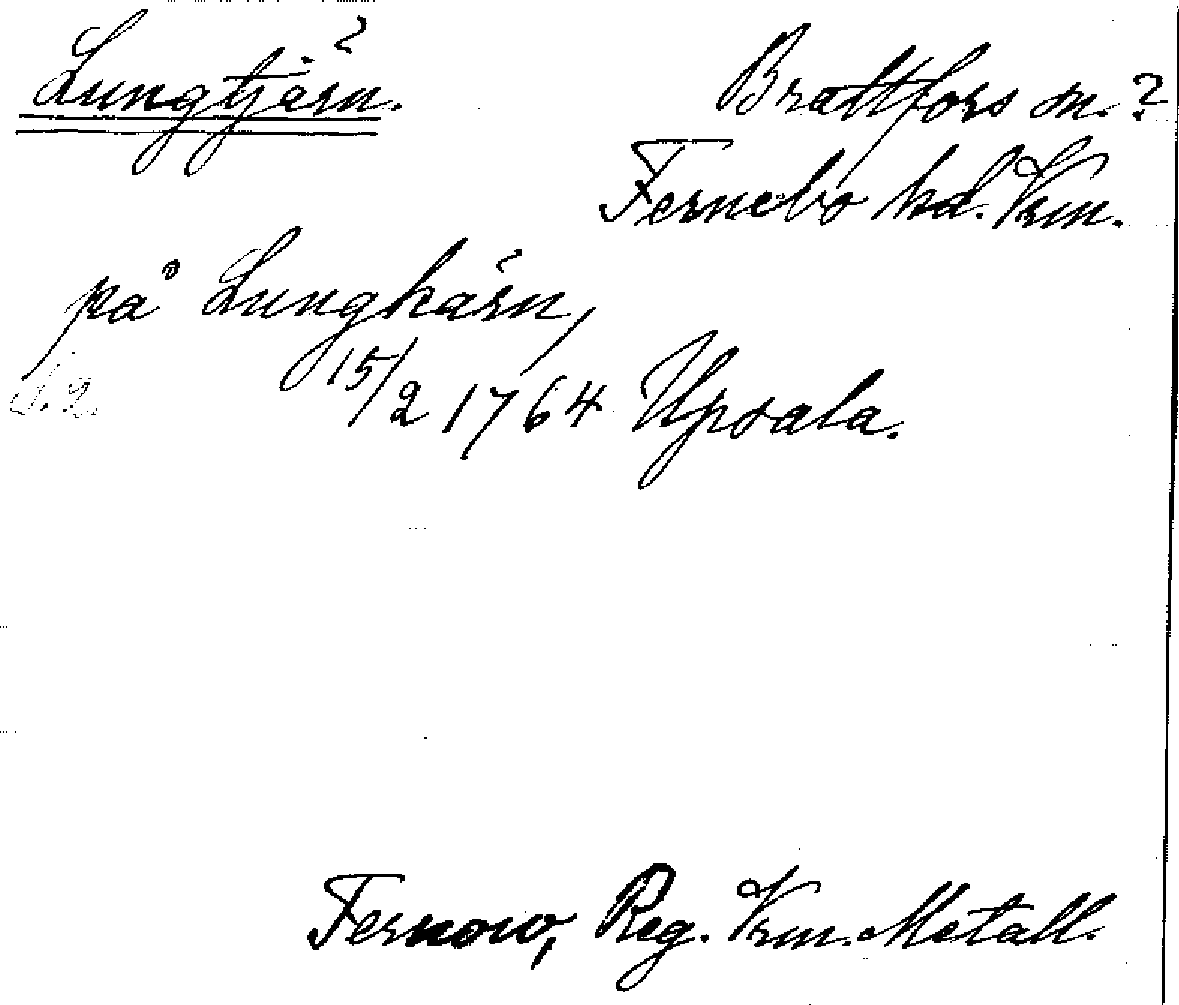 Lungtjärn. ?
Brattfors sn. ?
Fernebo hd. Vrm.
på Lungkärn,
15/2 1764 Upsala.
s. 2.
Fernow, Reg. Vrm. Metall.